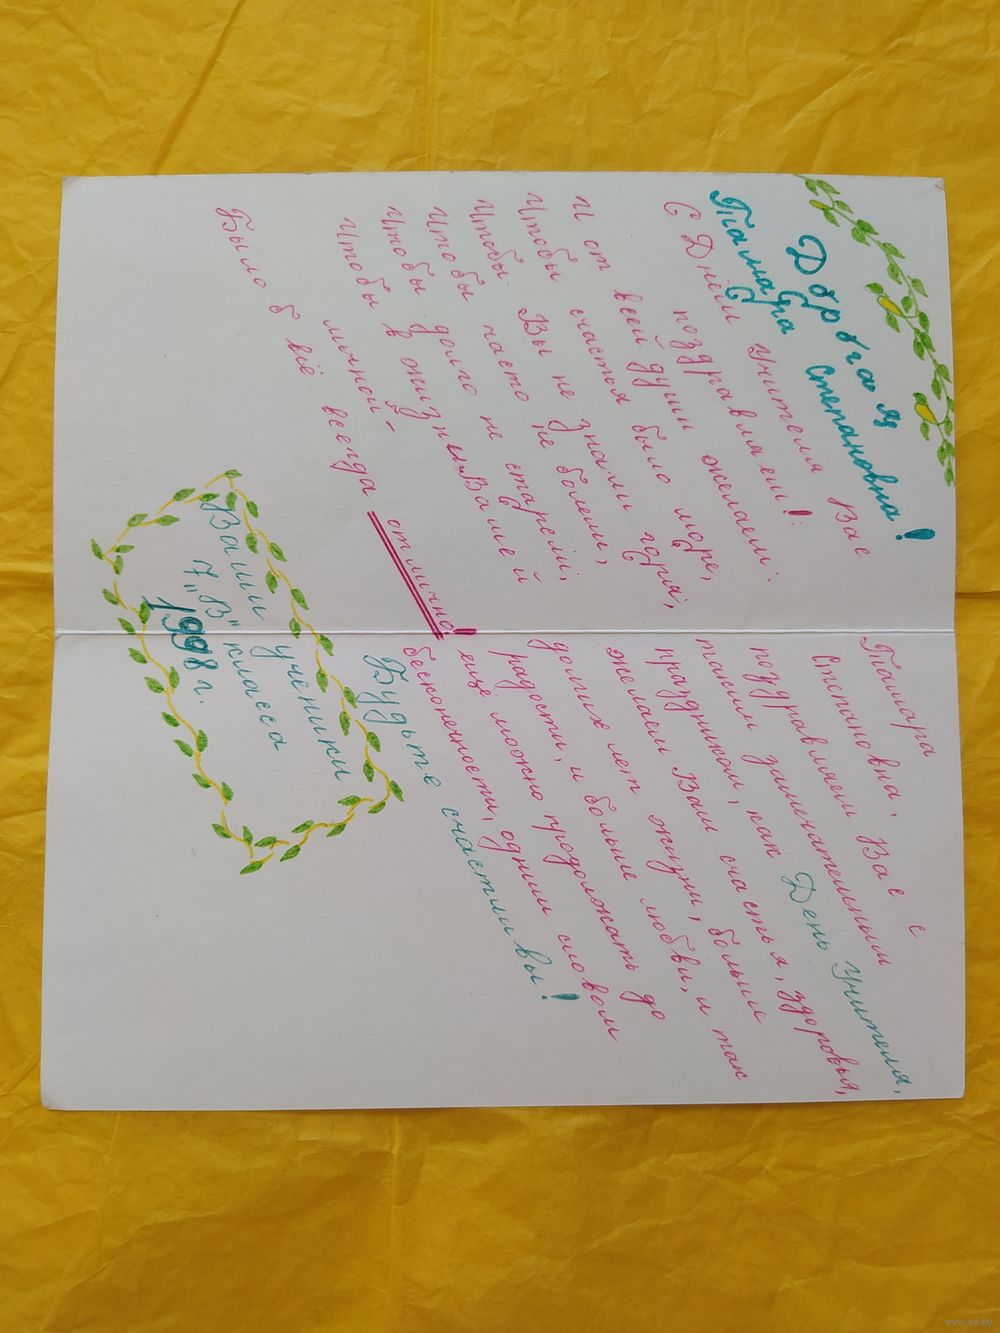 Дорогая
Тамара Степановна!
С Днём учителя Вас
поздравляем!
И от всей души желаем:
Чтобы счастья было море,
Чтобы Вы не знали горя,
Чтобы часто не болели,
Чтобы долго не старели,
Чтобы в жизни Вашей
личной -
Было б всё всегда отлично!
Тамара
Степановна,
поздравляем Вас с
таким замечательным
праздником, как День Учителя,
желаем Вам счастья, здоровья,
долгих лет жизни, больше
радости, и больше любви, и так
ещё можно продолжать до
бесконечности, одним словом
Будьте счастливы!
Ваши ученики
7 "В" класса
1998 г.
www.ay.by